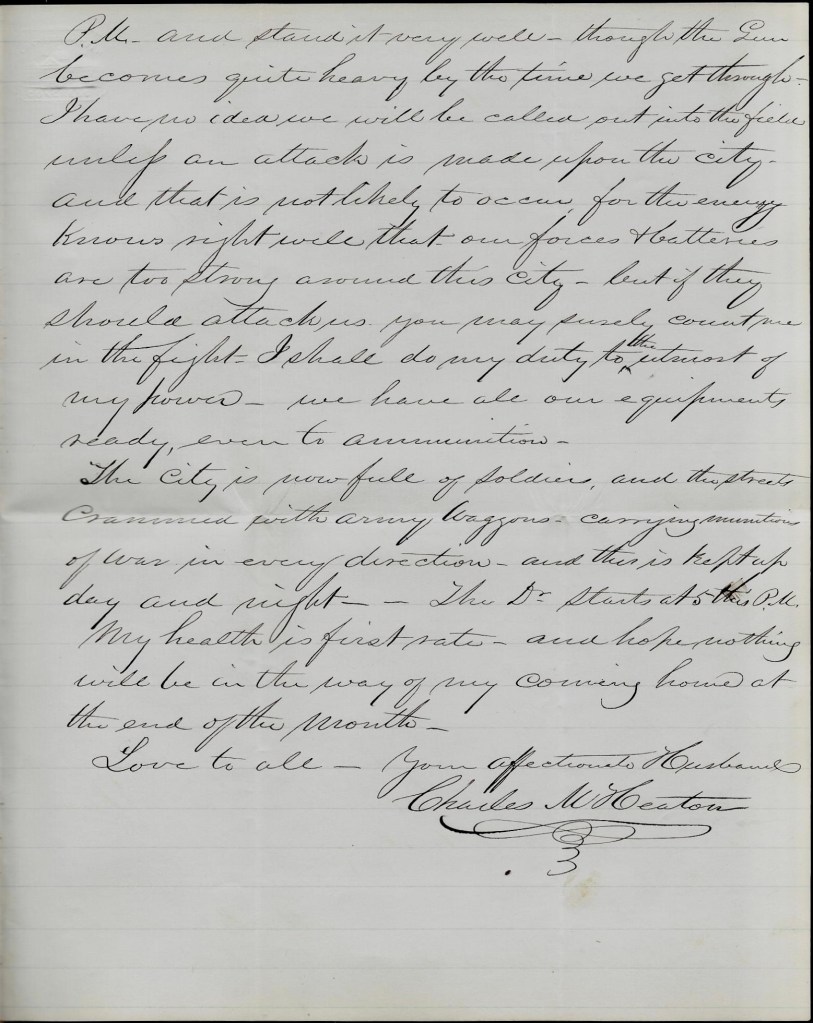 P.M. - and stand it very well - though the Gun
becomes quite heavy by the time we get through -
I have no idea we will be called out into the field
unless an attack is made upon the city -
and that is not likely to occur, for the enemy
knows right well that our forces & batteries
are too strong around this city - but if they
should attack us you may surely count me
in the fight - I shall do my duty to the utmost of
my power - we have all our equipments
ready, even to ammunition -
The city is now full of soldiers, and the streets
crammed with army Waggons - carrying munitions
of war in every direction - and this is kept up
day and night - - The Dr starts at 5 this P.M.
My health is first rate - and hope nothing
will be in the way of my coming home at
the end of the month -
Love to all - Your affectionate Husband
Charles M Heaton